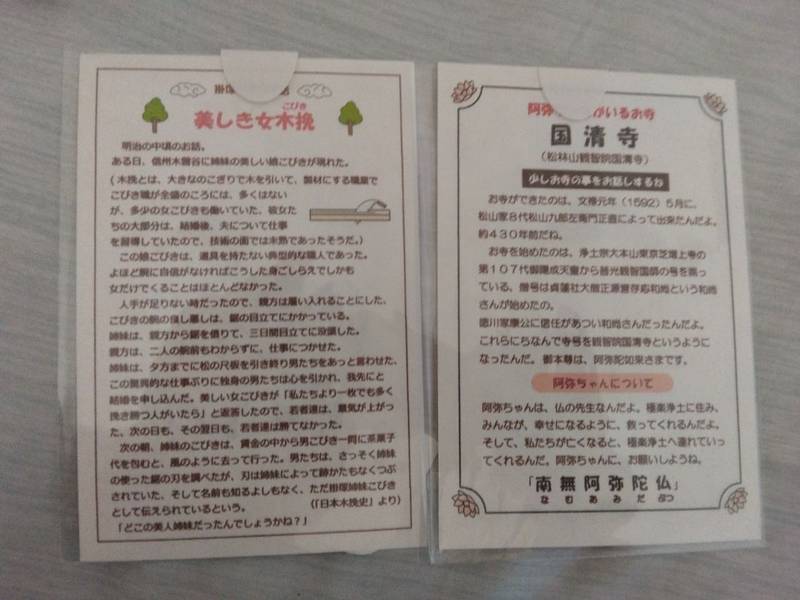 掛塚
話
こびき
美しき女木挽
明治の中頃のお話。
ある日、信州木曽谷に姉妹の美しい娘こびきが現れた。
(木挽とは、大きなのこぎりで木を引いて、製材にする職業で
こびき職が全盛のころには、多くはない
が、多少の女こびきも働いていた、彼女た
ちの大部分は、結婚後、夫について仕事
を習得していたので、技術の面では未熟であったそうだ。)
この娘こびきは、道具を持たない典型的な職人であった。
よほど腕に自信がなければこうした身ごしらえでしかも
女だけでくることはほとんどなかった。
人手が足りない時だったので、親方は雇い入れることにした、
こびきの腕の良し悪しは、鋸の目立てにかかっている。
姉妹は、親方から鋸を借りて、三日間目立てに没頭した。
親方は、二人の腕前もわからずに、仕事につかせた。
姉妹は、夕方までに松の尺板を引き終り男たちをあっと言わせた、
この驚異的な仕事ぶりに独身の男たちは心を引かれ、我先にと
結婚を申し込んだ。美しい女こびきが「私たちより一枚でも多く
挽き勝つ人がいたら」と返答したので、若者達は、意気が上がっ
た、次の日も、その翌日も、若者達は勝てなかった。
次の朝、姉妹のこびきは、賃金の中から男こびき一同に茶菓子
代を包むと、風のように去って行った。男たちは、さっそく姉妹
の使った鋸の刃を調べたが、刃は姉妹によって跡かたもなくつぶ
されていた、そして名前も知るよしもなく、ただ掛塚姉妹こびき
として伝えられているという。 (「日本木挽史」より)
「どこの美人姉妹だったんでしょうかね?」
阿弥
がいるお寺
国清寺
(松林山観智院国清寺)
少しお寺の事をお話しするね
お寺ができたのは、文禄元年(1592)5月に、
松山家8代松山九郎左衛門正直によって出来たんだよ。
約430年前だね。
お寺を始めたのは、浄土宗大本山東京芝増上寺の
第107代御陽成天皇から普光観智国師の号を賜っ
ている、僧号は貞蓮社大僧正源誉存応和尚という和尚
さんが始めたの。
徳川家康公に信任があつい和尚さんだったんだよ。
これらにちなんで寺号を観智院国清寺というように
なったんだ。御本尊は、阿弥陀如来さまです。
阿弥ちゃんについて
阿弥ちゃんは、仏の先生なんだよ。極楽浄土に住み、
みんなが、幸せになるように、救ってくれるんだよ。
そして、私たちが亡くなると、極楽浄土へ連れていっ
てくれるんだ。阿弥ちゃんに、お願いしようね。
「南無阿弥陀仏」
なむあみだぶつ